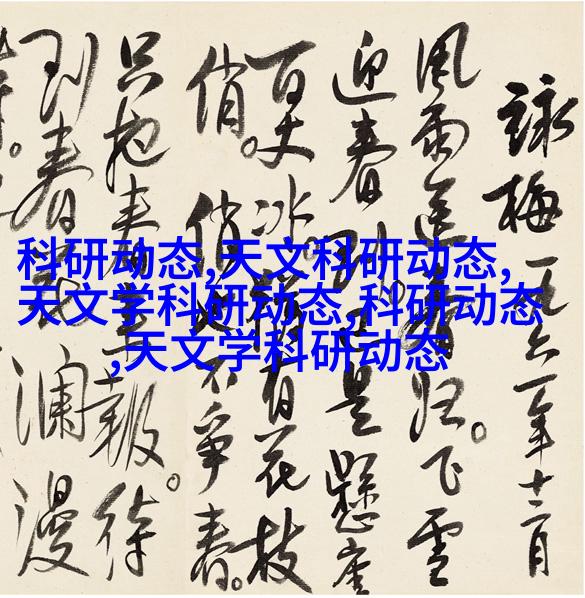 詠梅 一九六一年十二月
風雨送春歸。飞雪
迎春到已是懸崖
百丈冰猶有花枝
俏。俏也不爭春。
只把春來報。待
到春花瀾漫
科研动态,天文科研动态,
天文学科研动态,科研动态
,天文学科研动态